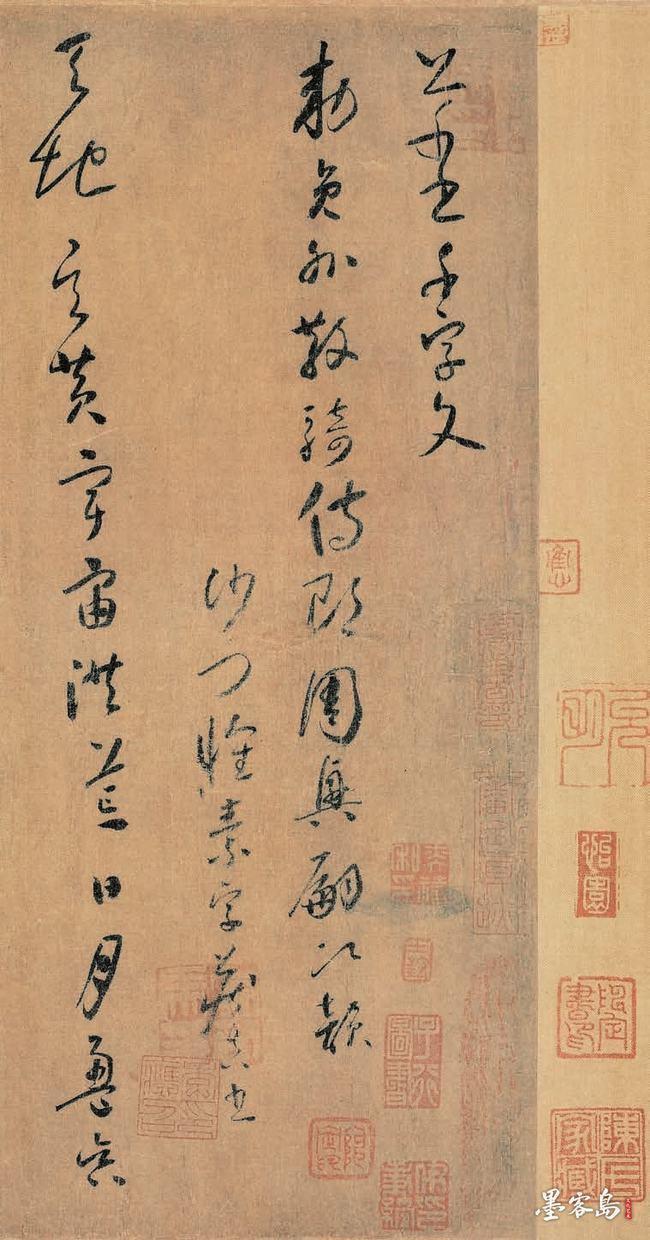 草書千字文
勅員外散騎侍郎周興嗣次韻
沙門懷素字藏真書
天地玄黃宇宙洪荒日月盈昃
怡園
陳氏家藏
墨客岛